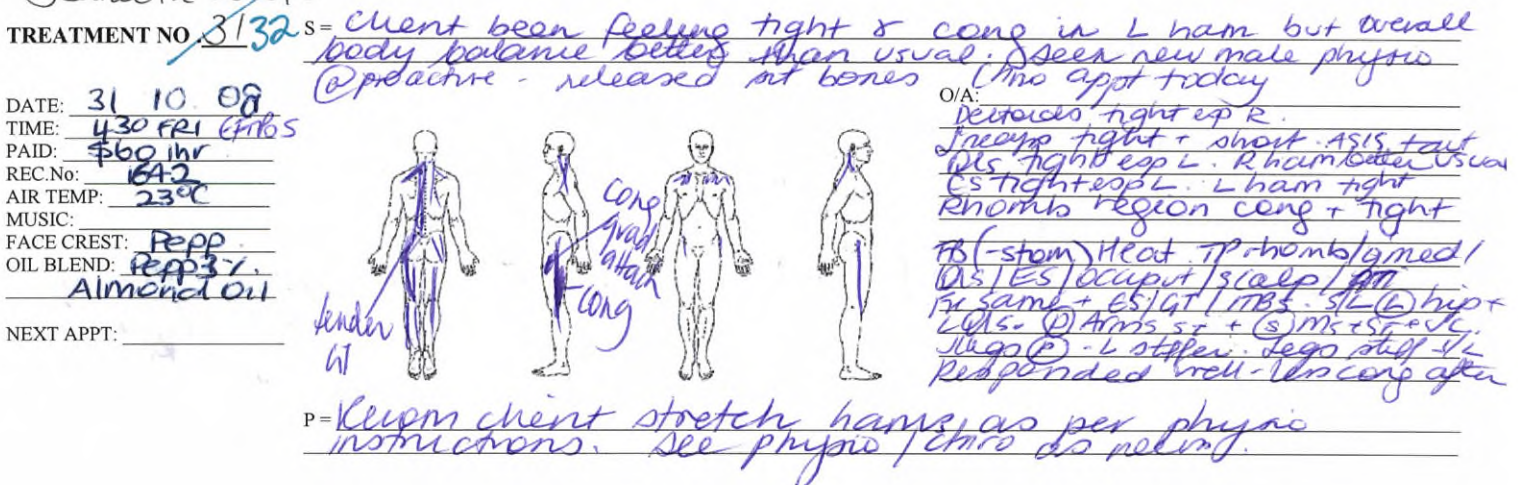 TREATMENT NO. 3132
S= Client been feeling tight & cong in L ham but overall
body balance better than usual. Seen new male physio
@ proactive - released sit bones Chiro appt today
DATE: 31 10 08
TIME: 430 FRI
PAID: $60 1hr
REC.No: 1642
AIR TEMP: 23°C
MUSIC:
FACE CREST: Pepp
OIL BLEND: Pepp 3%
Almond Oil
NEXT APPT:
tender
GT
cong
quad
attach
cong
O/A:
Deltoids tight esp R.
tight + short. ASIS taut
QLs tight esp L. R ham better usual
ES tight esp L. L ham tight
Rhomb region cong + tight
FB (-stom) Heat TP rhomb/gmed/
QLs/ES/occuput/scalp/
same + ES/GT/ITBS. S/L (L) hip +
LQLs. (P) Arms ST + (S) MS + ST +
(P) - L stiffer. Legs stiff
Responded well - less cong after
P= client stretch hams, as per physio
instructions. See physio/chiro as